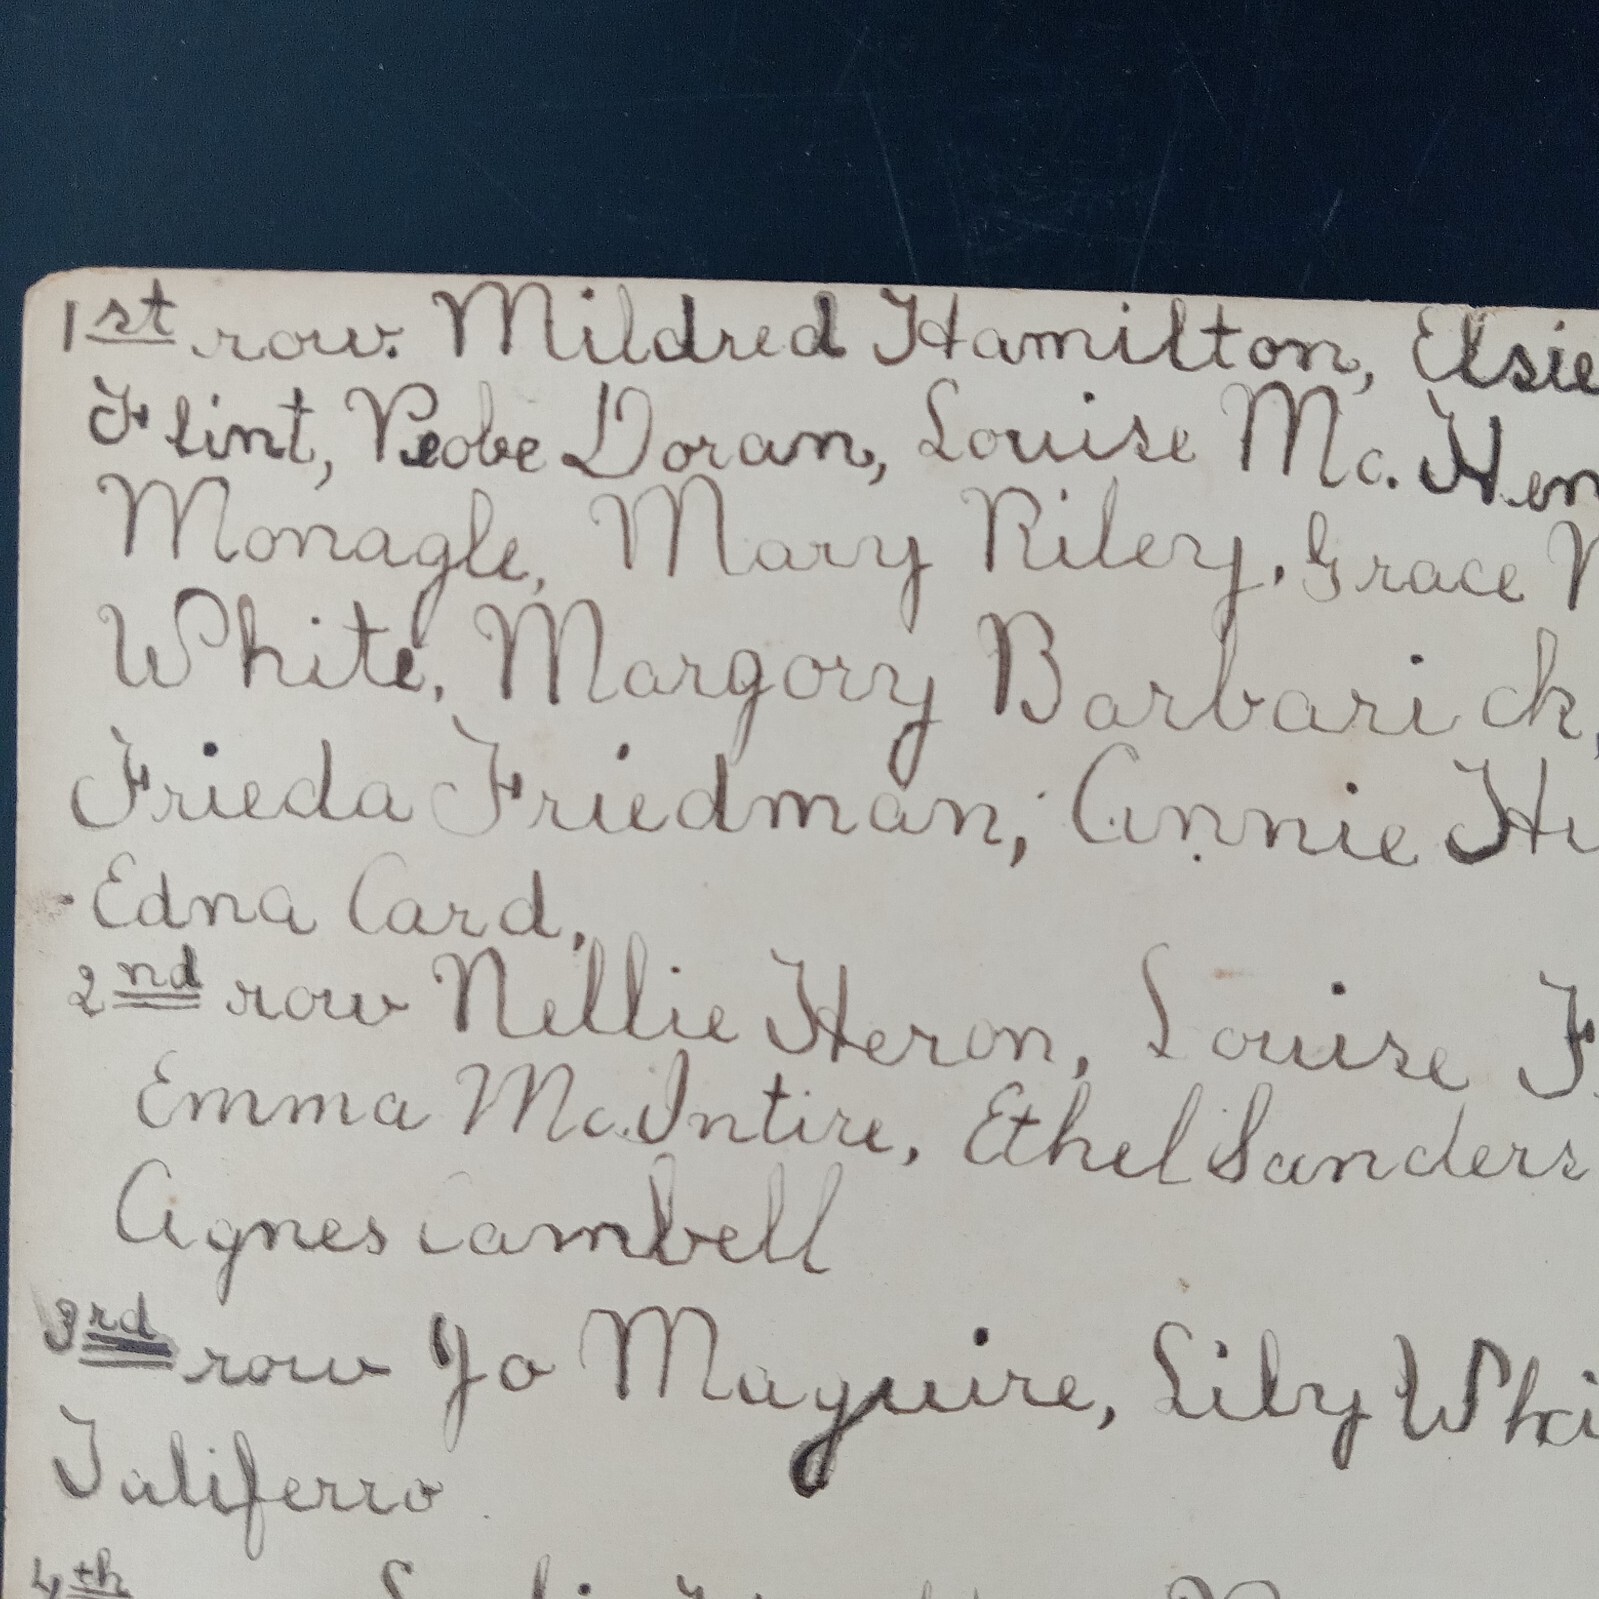 1st row. Mildred Hamilton, Elsie
Flint, Peobe Doran, Louise Mc. Hen
Monagle, Mary Riley, Grace
White, Margory Barbarick,
Frieda Friedman, Annie
Edna Card,
2nd row Nellie Heron, Louise F
Emma Mc.Intire, Ethel Sanders
Agnes Cambell
3rd row Jo Maguire, Lily Whi
Taliferro
4th